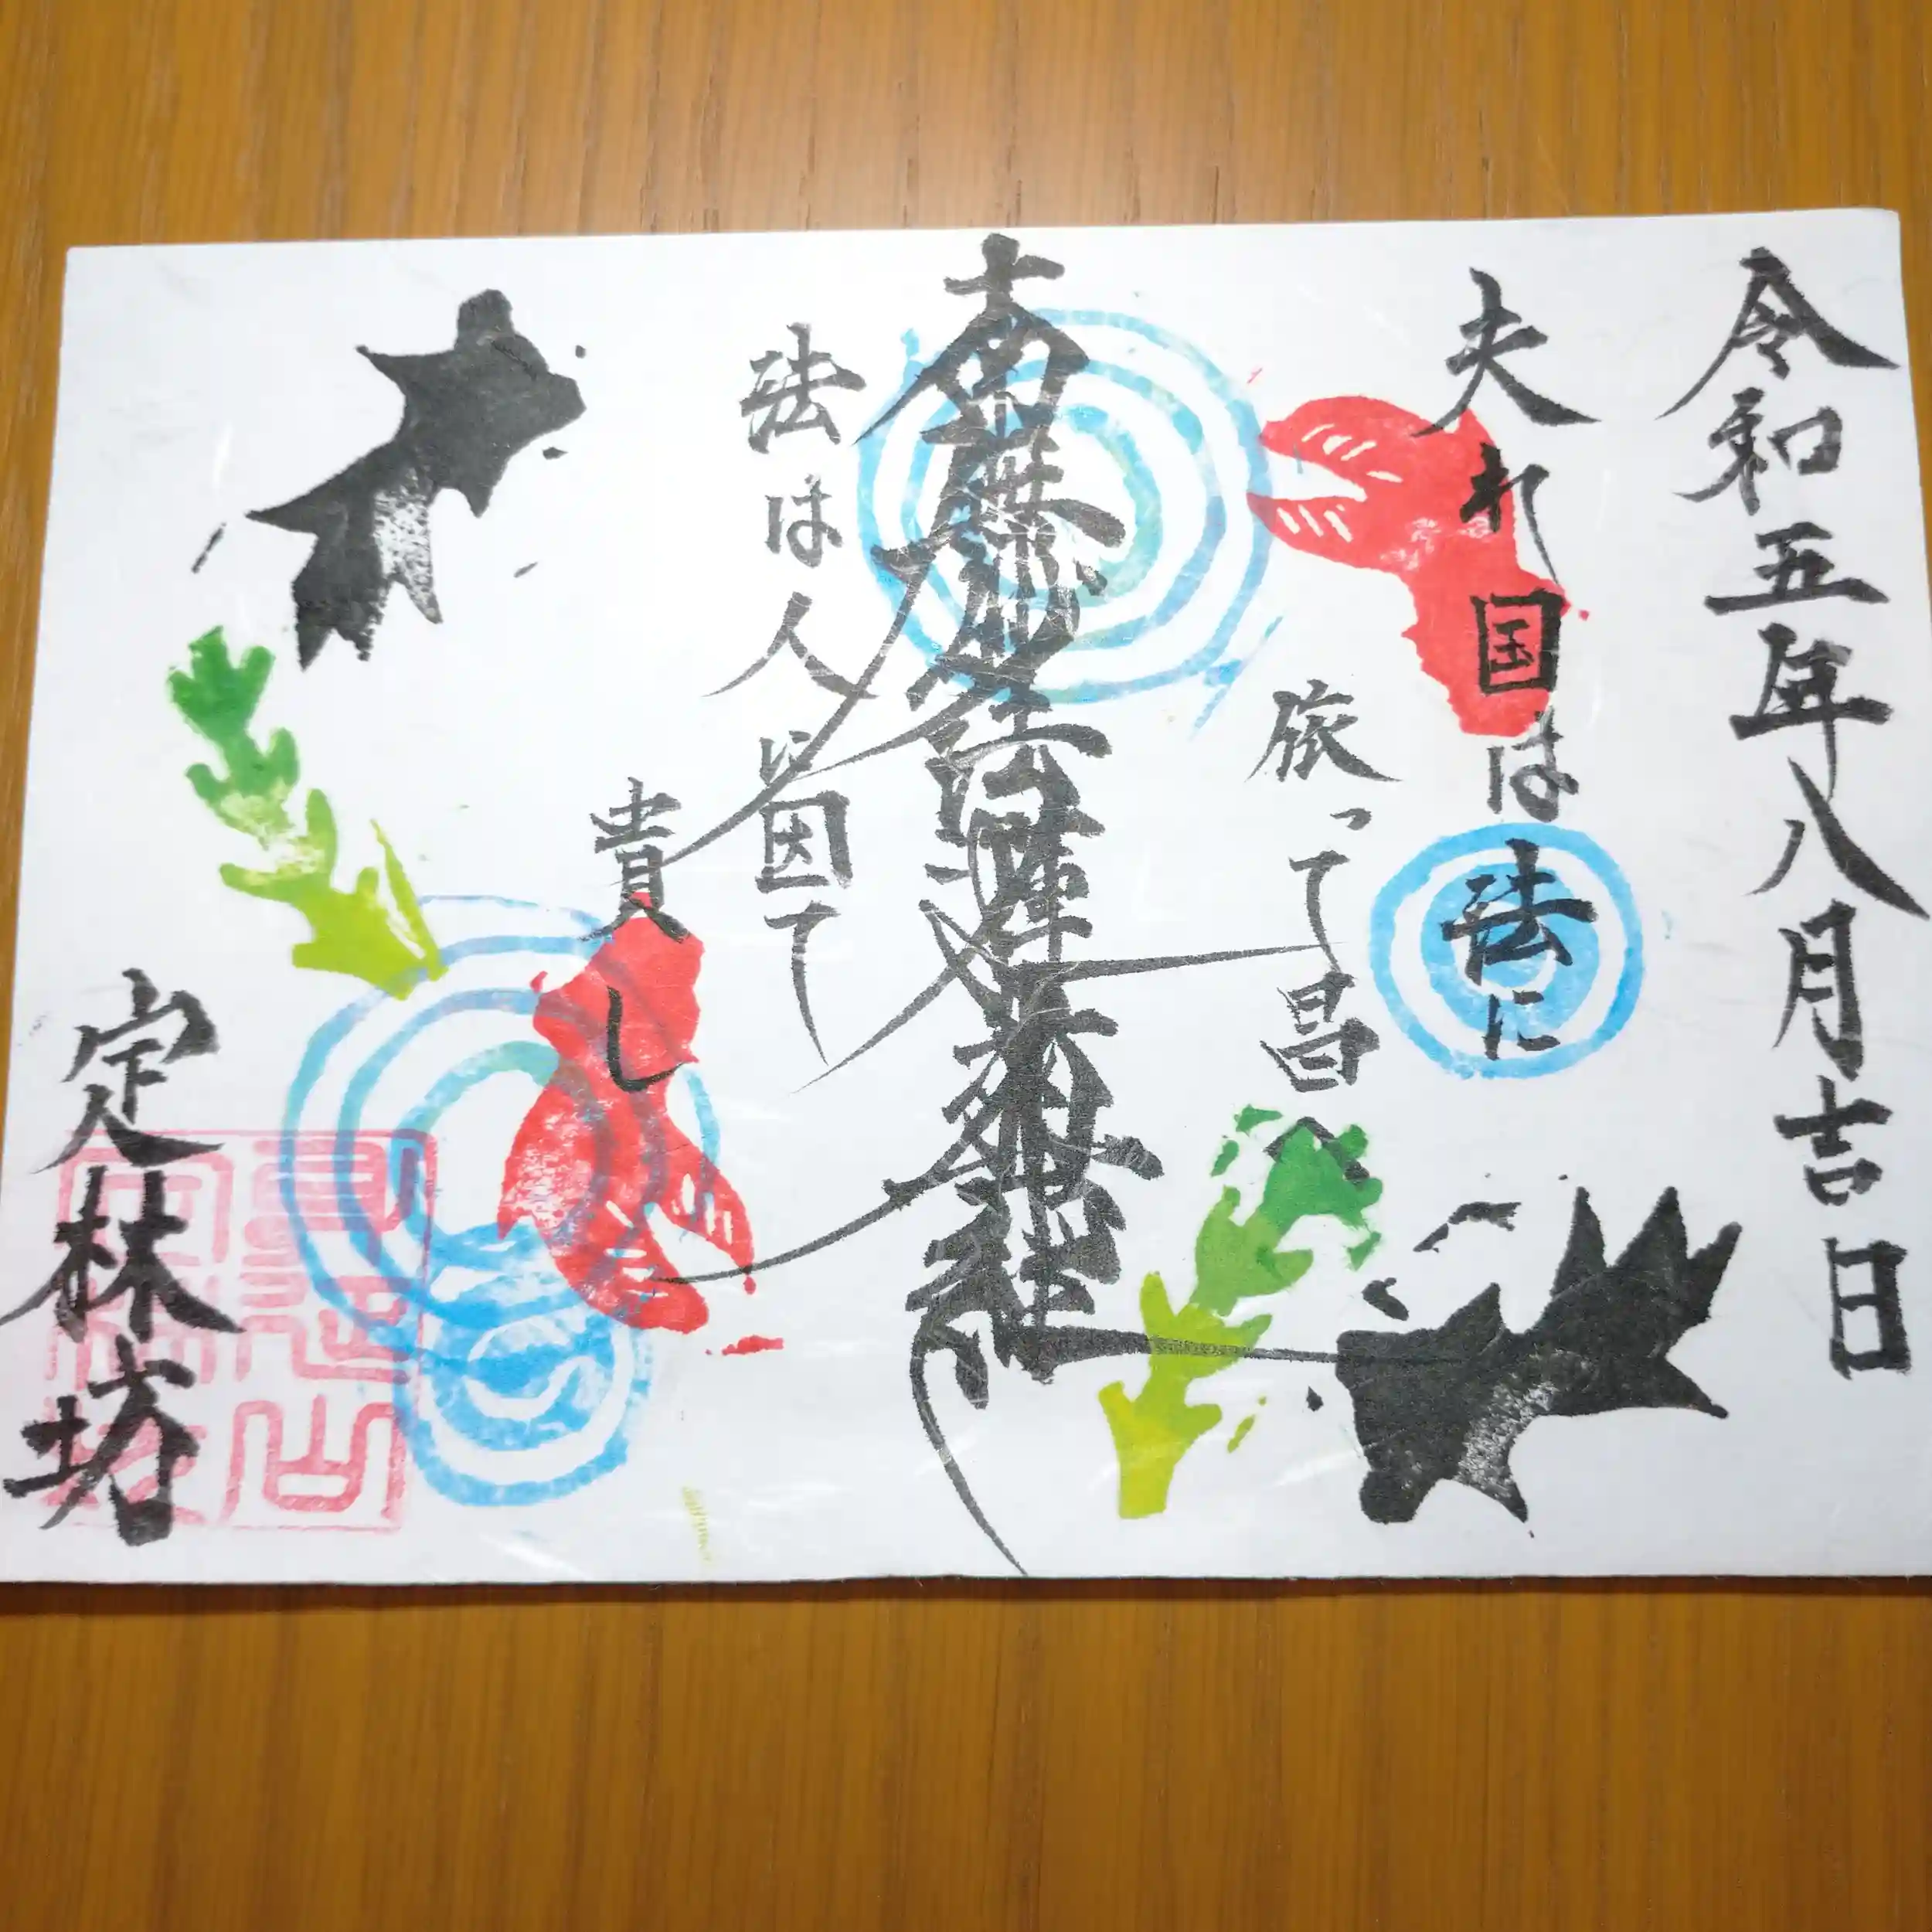 令和五年八月吉日
夫れ国は法に
依って昌へ
南無妙法蓮華経
法は人に因て
貴し
定林坊